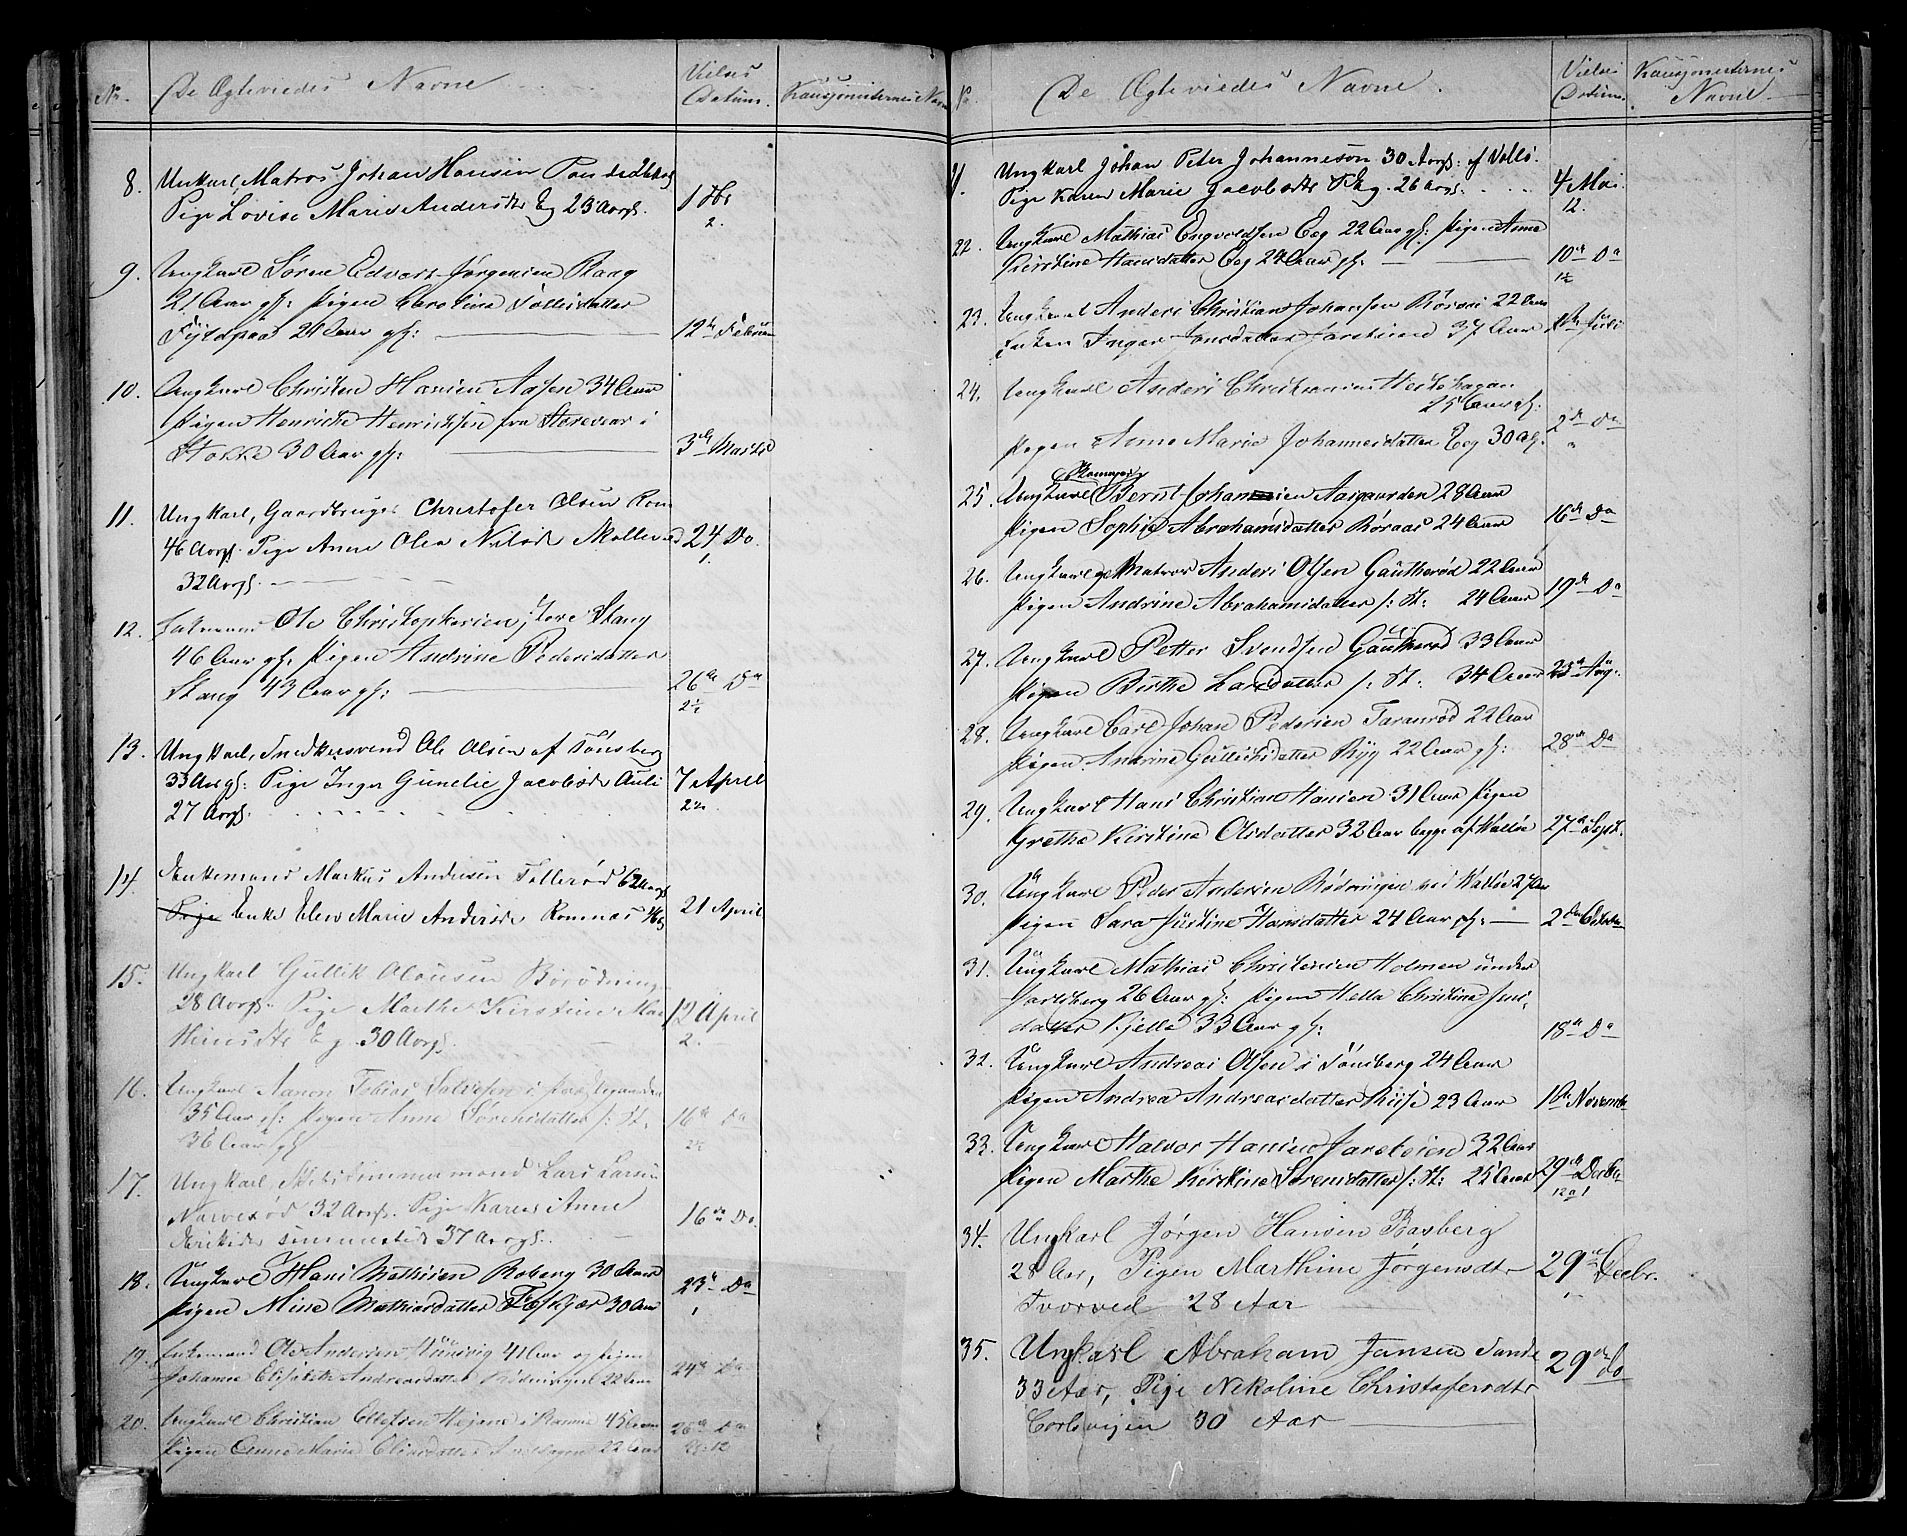 No. De Ægteviedes Navne Vielses Datum. Kausjonisternes Navne
8. Unkarl, Matros Johan Hansen
Pige Lovise Marie Andersdtr Eg 23 Aargl. 1 Do
2.
9. Ungkarl Søren Edvart Jørgensen Raag
21 Aar gl: Pigen Caroline Tollefsdatter
21 Aar gl: 12te Februar
10. Ungkarl Christen Hansen Aasen 34 Aar
Pigen Henricke Henriksen fra Storevar i
Stokke 30 Aar gl: 3die Marts
11. Ungkarl, Gaardbruger Christofer Olsen Rom
46 Aargl. Pige Anne Olea Nilsdr 24 Do.
32 Aargl. 1.
12. Enkemand Ole Christophersen store Stang
46 Aar gl: Pigen Andrine Pedersdatter
Stang 43 Aar gl: 26de Do
13. Ungkarl, Snedkersvend Ole Olsen af Tönsberg
33 Aar gl: Pige Inger Gunelie Jacobsdr Auli 7 April
27 Aargl.
14. Enkemand Markus Andersen Tollerød 62 Aargl
Pige Enke Elen Marie Andersdr Romnæs 21 April
15. Ungkarl Gullik Olausen
28 Aargl. Pige Marthe Kirstine Mat 12 April
hiasdtr Eg. 30 Aargl. 2.
16. Ungkarl Aanon Tobias Salvesen i
35 Aar gl: Pigen Anne Sørensdatter s: St. 16de Do
36 Aar gl
17. Ungkarl, Skibstømmermand Lars Larsen
Narverød 32 Aargl. Pige Karen Anne
Eriksdr sammesteds 37 Aargl. 16de Do.
18. Ungkarl Hans Mathisen Roberg 30 Aar 23de Do
Pigen Mine Mathiasdatter Føskjær 30 Aar 1
19. Enkemand Ole Andersen Huusvig 41 Aar og Pigen
Johanne Elisabeth Andreasdatter 22 Aar 24de Do
20. Ungkarl Christian Ellefsen 45 Aar
Pigen Anne Marie Eliasdatter 22 Aar
No. De Ægteviedes Navne. Vielses Datum Kausjonisternes Navne
21. Ungkarl Johan Peter Johannesøn 30 Aargl: af Vallö. 4 Mai
Pige Karen Marie Jacobsdtr Eg. 26 Aargl. 12.
22. Ungkarl Mathias Engvoldsen Eeg 22 Aar gl: Pigen Anne
Kirstine Hansdatter Eeg 24 Aar gl: 10de Do
23. Ungkarl Anders Christian Johansen Röraas 22 Aar
Enken Inger Jansdatter Jarsteien 37 Aar Juli
24. Ungkarl Anders Christiansen Hestehagen
25 Aar gl:
Pigen Anne Marie Johannesdatter Eeg 30 Ag. 2de Do
25. Ungkarl Bernt Johansen Aasgaarden 28 Aar
Pigen Sophie Abrahamsdatter Röraas 24 Aar 16de Do
26. Ungkarl og Matros Anders Olsen Gautherød 22 Aar
Pigen Andrine Abrahamsdatter s: St: 24 Aar 19de Do
27. Ungkarl Petter Svendsen Gautherød 33 Aar
Pigen Birthe Larsdatter s: St: 34 Aar Aug:
28. Ungkarl Carl Johan Pedersen Taranrød 22 Aar
Pigen Andrine Gullichsdatter Ryg 22 Aar gl: 28de Do
29. Ungkarl Hans Christian Hansen 31 Aar Pigen
Grethe Kirstine Olsdatter 32 Aar begge af Valløe 27de Sept.
30. Ungkarl Peder Andersen Rødningen ved Valløe 27 Aar
Pigen Sara Justine Hansdatter 24 Aar gl: 2den Octobr
31. Ungkarl Mathias Christensen Holmen under
Jarlsberg 26 Aar gl: Pigen Helle Christine Jens-
datter Kjelle 33 Aar gl: 18de Do
32. Ungkarl Andreas Olsen i Tönsberg 24 Aar
Pigen Andrea Andreasdatter Riise 23 Aar Novembr
33. Ungkarl Halvor Hansen Jarsteien 32 Aar
Pigen Marthe Kirstine Sørensdatter s: St: 25 Aar 29de Decbr
34. Ungkarl Jørgen Hansen Basberg
28 Aar, Pigen Marthine Jørgensdtr 29de Decbr.
Tvorved 28 Aar
35. Ungkarl Abraham Jansen Sande 29de do
33 Aar, Pige Nekoline Christofersdtr
30 Aar